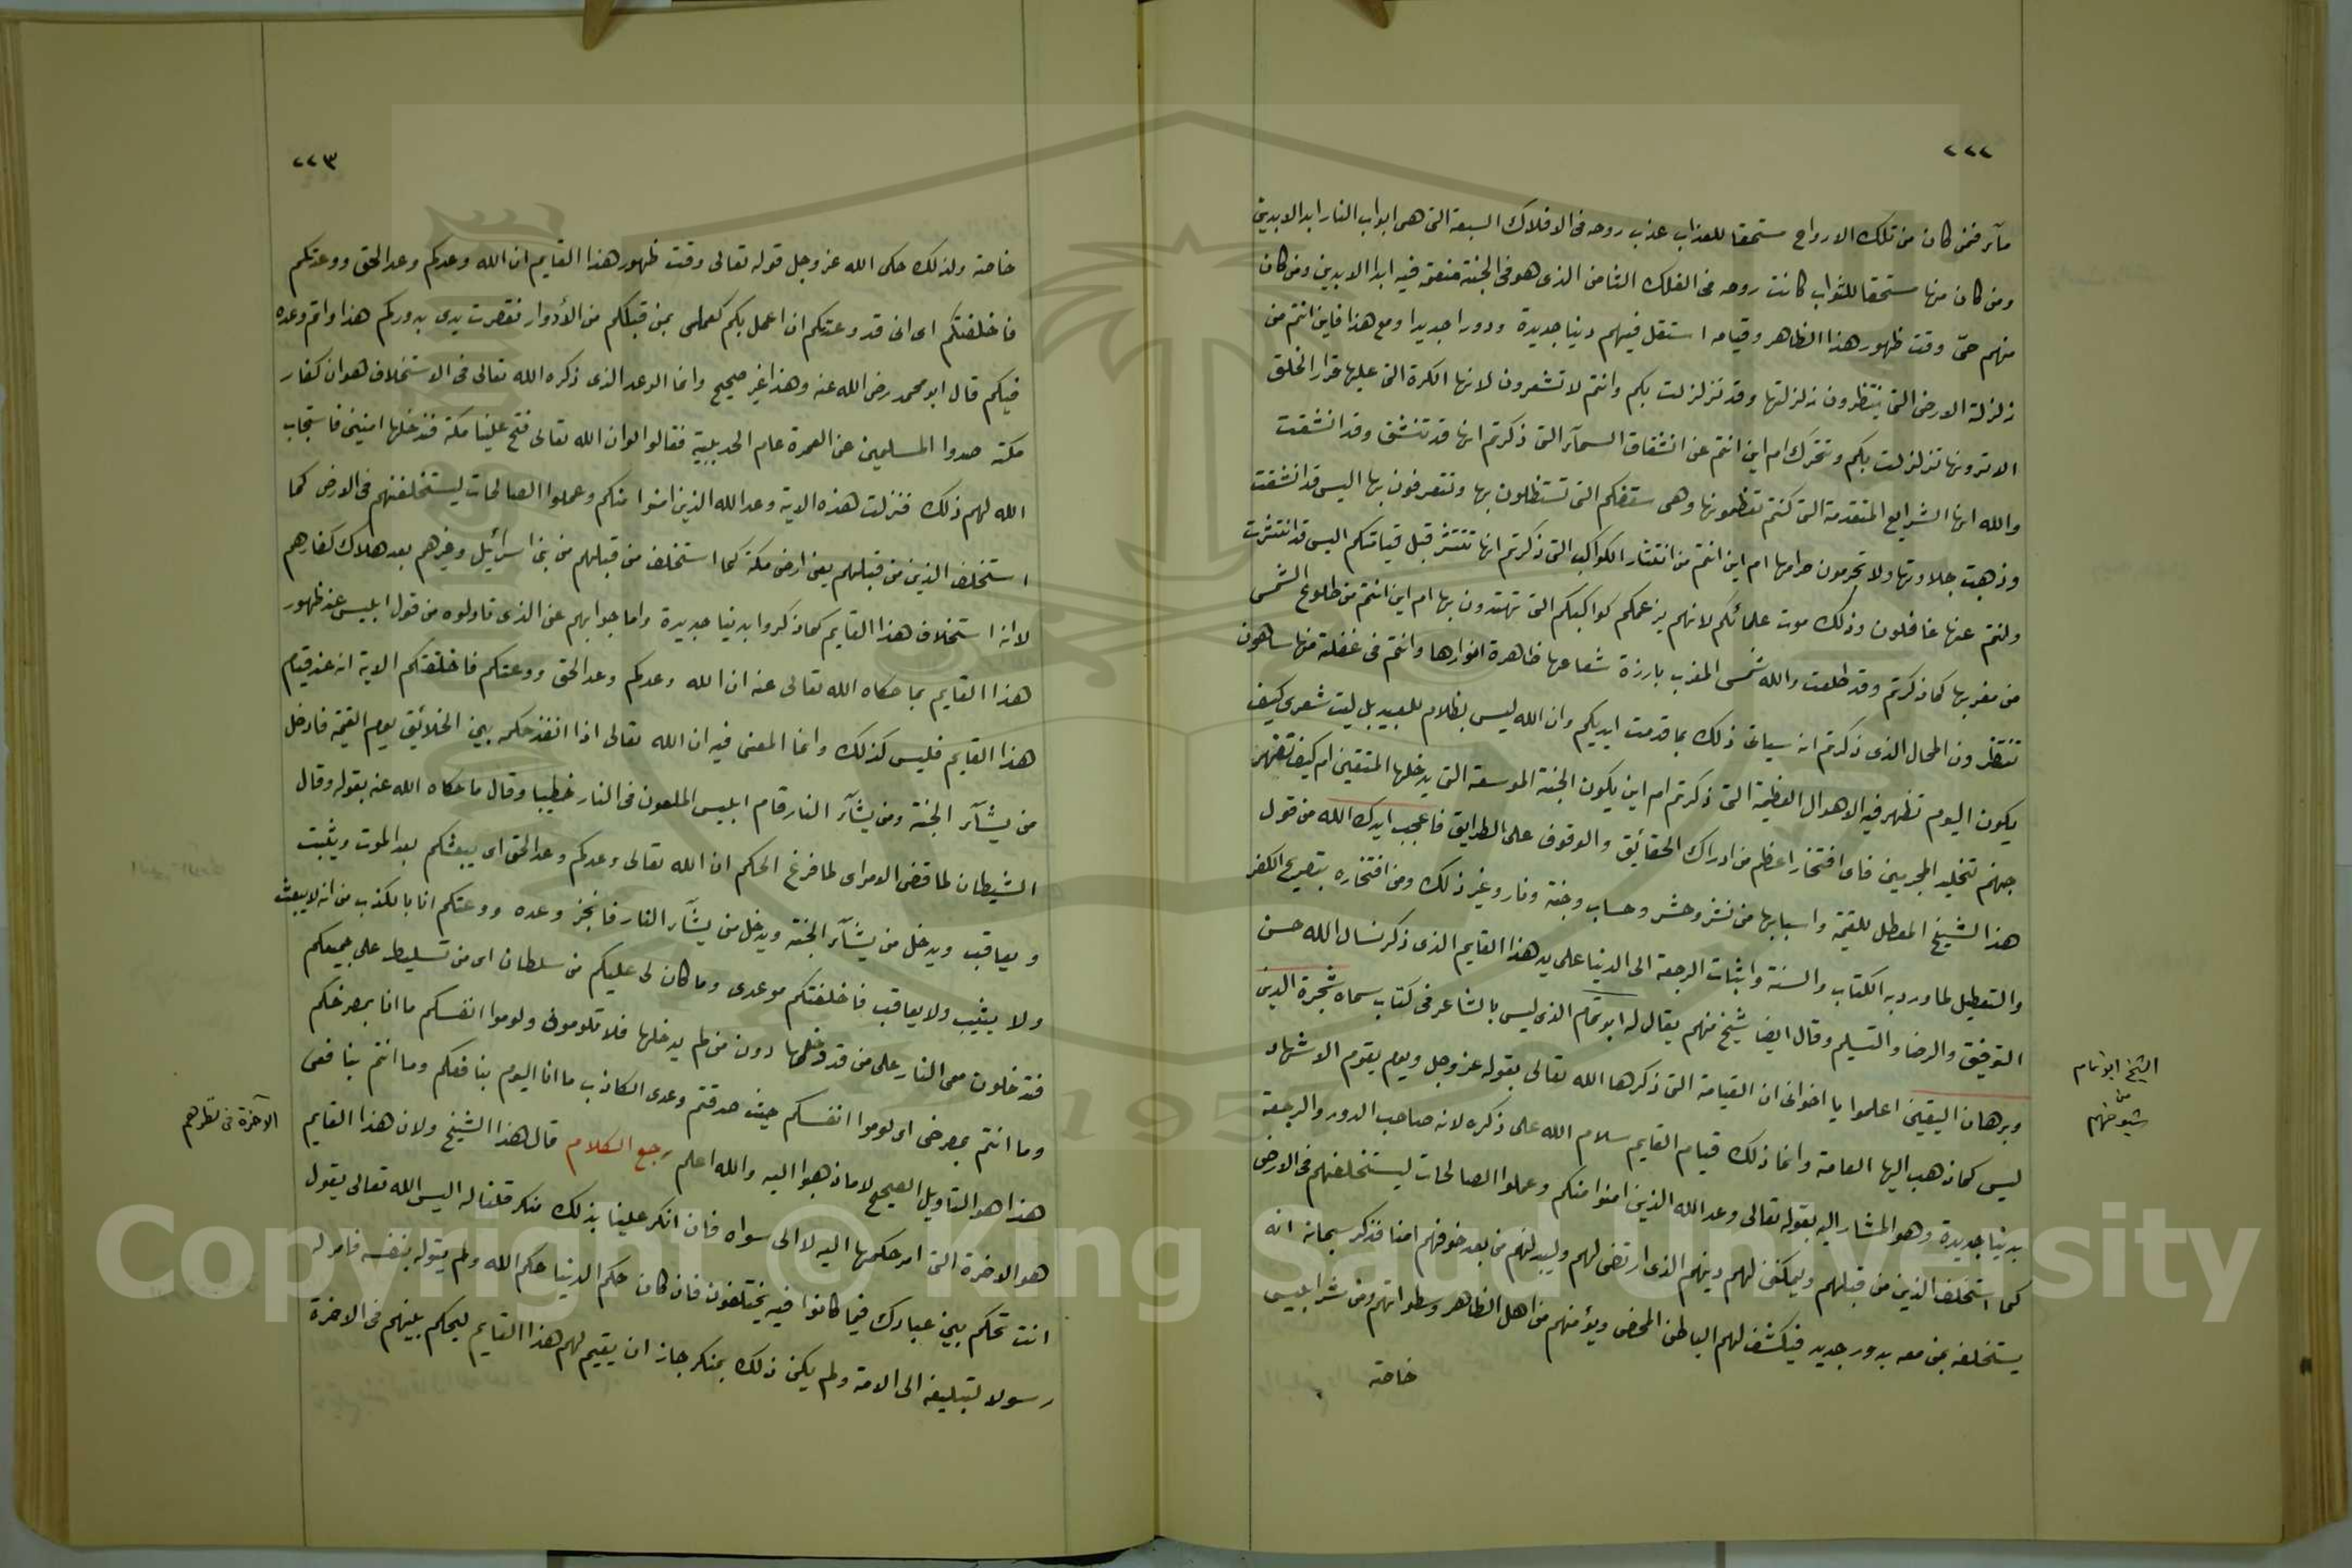 ٢٢٢
مآء فمن كان من تلك الارواح مستحقا للعذاب عذب روحه فى الافلاك السبعة التى هى ابواب النار ابد الابدين
ومن كان منها مستحقا للثواب كانت روحه فى الفلك الثامن الذى هو فى الجنة منعمة فيه ابدا الابدين ومن كان
منهم حىّ وقت ظهور هذا الظاهر وقيامه استقل فيهم دنيا جديدة ودورا جديدا ومع هذا فاين انتم من
زلزلة الارض التى ينتظرون زلزلتها وقد تزلزلت بكم وانتم لا تشعرون لانها الكرة التى عليها قرار الخلق
الا ترونها تزلزلت بكم وتتحرك ام اين انتم عن انشقاق السمآء التى ذكرتم انها قد تنشق وقد انشقت
والله انها الشرايع المتقدمة التى كنتم تعظمونها وهى سقفكم التى تستظلون بها وتتعرفون بها اليس قد انشقت
وذهبت حلاوتها ولا تحرمون حرامها ام اين انتم من انتثار الكواكب التى ذكرتم انها تنتثر قبل قيامتكم اليس قد انتثرت
وانتم عنها غافلون وذلك موت علمائكم لانهم بزعمكم كواكبكم التى تهتدون بها ام اين انتم من طلوع الشمس
من مغربها كما ذكرتم وقد طلعت والله شمس المغرب بارزة شعاعها ظاهرة انوارها وانتم فى غفلة منها ساهون
تنتظرون المحال الذى ذكرتم انه سياتى ذلك بما قدمت ايديكم وان الله ليس بظلام للعبيد بل ليت شعرى كيف
يكون اليوم تظهر فيه الاهوال العظيمة التى ذكرتم ام اين يكون الجنة الموسعة التى يدخلها المتقين ام كيف تظهر
جهنم تخليد المجرمين فاى افتخار اعظم من ادراك الحقائق والوقوف على الطرايق فاعجب ايدك الله من قول
هذا الشيخ المعطل للقيمة واسبابها من نشر وحشر وحساب وجنة ونار وغير ذلك ومن افتخاره بتصريح الكفر
والتعطيل لما ورد به الكتاب والسنة واثبات الرجعة الى الدنيا على يد هذا القايم الذى ذكر نسال الله حسن
التوفيق والرضا والتسليم وقال ايضا شيخ منهم يقال له ابو تمام الذى ليس بالشاعر فى كتاب سماه شجرة الدين
وبرهان اليقين اعلموا يا اخوانى ان القيامة التى ذكرها الله تعالى بقوله عز وجل ويوم يقوم الاشهاد
ليس كما ذهب اليها العامة وانما ذلك قيام القايم سلام الله على ذكره لانه صاحب الدور والرجعة
بدنيا جديدة وهو المشار اليه بقوله تعالى وعد الله الذين امنوا منكم وعملوا الصالحات ليستخلفنهم فى الارض
كما استخلف الذين من قبلهم وليمكنن لهم دينهم الذى ارتضى لهم وليبدلنهم من بعد خوفهم امنا فذكر سبحانه انه
يستخلفه بمن معه بدور جديد فيكشف لهم الباطن المحض ويؤمنهم من اهل الظاهر وسطواتهم ومن شر ابليس
خاصة
الشيخ ابو تمام
من
شيوخهم
٢٢٣
خاصة ولذلك حكى الله عز وجل قوله تعالى وقت ظهور هذا القايم ان الله وعدكم وعد الحق ووعدتكم
فاخلفتكم اى انى قد وعدتكم ان اعمل بكم كعملى بمن قبلكم من الأدوار فقصرت يدى بدوركم هذا واتم وعده
فيكم قال ابو محمد رضى الله عنه وهذا غير صحيح وانما الوعد الذى ذكره الله تعالى فى الاستخلاف هو ان كفار
مكة صدوا المسلمين عن العمرة عام الحديبية فقالوا لو ان الله تعالى فتح علينا مكة فندخلها امنين فاستجاب
الله لهم ذلك فنزلت هذه الاية وعد الله الذين امنوا منكم وعملوا الصالحات ليستخلفنهم فى الارض كما
استخلف الذين من قبلهم يعنى ارض مكة كما استخلف من قبلهم من بنى اسرائيل وغيرهم بعد هلاك كفارهم
لا انه استخلاف هذا القايم كما ذكروا بدنيا جديدة واما جوابهم عن الذى تاولوه من قول ابليس عند ظهور
هذا القايم بما حكاه الله تعالى عنه ان الله وعدكم وعد الحق ووعدتكم فاخلفتكم الاية انه عند قيام
هذا القايم فليس كذلك وانما المعنى فيه ان الله تعالى اذا انفذ حكمه بين الخلائق يوم القيمة فادخل
من يشآء الجنة ومن يشآء النار قام ابليس الملعون فى النار خطيبا وقال ما حكاه الله عنه بقوله وقال
الشيطان لما قضى الامر اى لما فرغ الحكم ان الله تعالى وعدكم وعد الحق اى يبعثكم بعد الموت ويثبت
ويعاقب ويدخل من يشآء الجنة ويدخل من يشآء النار فانجز وعده ووعدتكم انا بالكذب من انه لا يبعث
ولا يثيب ولا يعاقب فاخلفتكم موعدى وما كان لى عليكم من سلطان اى من تسليط على جميعكم
فتدخلون معى النار على من قد دخلها دون من لم يدخلها فلا تلومونى ولوموا انفسكم ما انا بمصرخكم
وما انتم بمصرخى اى لوموا انفسكم حيث صدقتم وعدى الكاذب ما انا اليوم بنافعكم وما انتم بنافعى
هذا هو التاويل الصحيح لا ما ذهبوا اليه والله اعلم رجع الكلام قال هذا الشيخ ولان هذا القايم
هو الاخرة التى امر حكمها اليه لا الى سواه فان انكر علينا بذلك منكر قلنا له اليس الله تعالى يقول
انت تحكم بين عبادك فيما كانوا فيه يختلفون فان كان حكم الدنيا حكم الله ولم يتوله بنفسه فامر له
رسولا لتبليغه الى الامة ولم يكن ذلك بمنكر جاز ان يقيم لهم هذا القايم ليحكم بينهم فى الاخرة
الآخرة فى نظرهم
Copyright © King Saud University
195